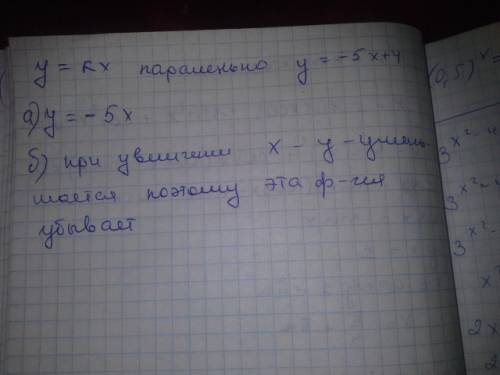 y = kx параленьно y = -5x+4
а) y = -5x
б) при увеличении x - y - умень-
шается поэтому эта ф-ция
убывает
(0,5)^x =
3^x²-4
3^x²-
3^x²-
x²
2x